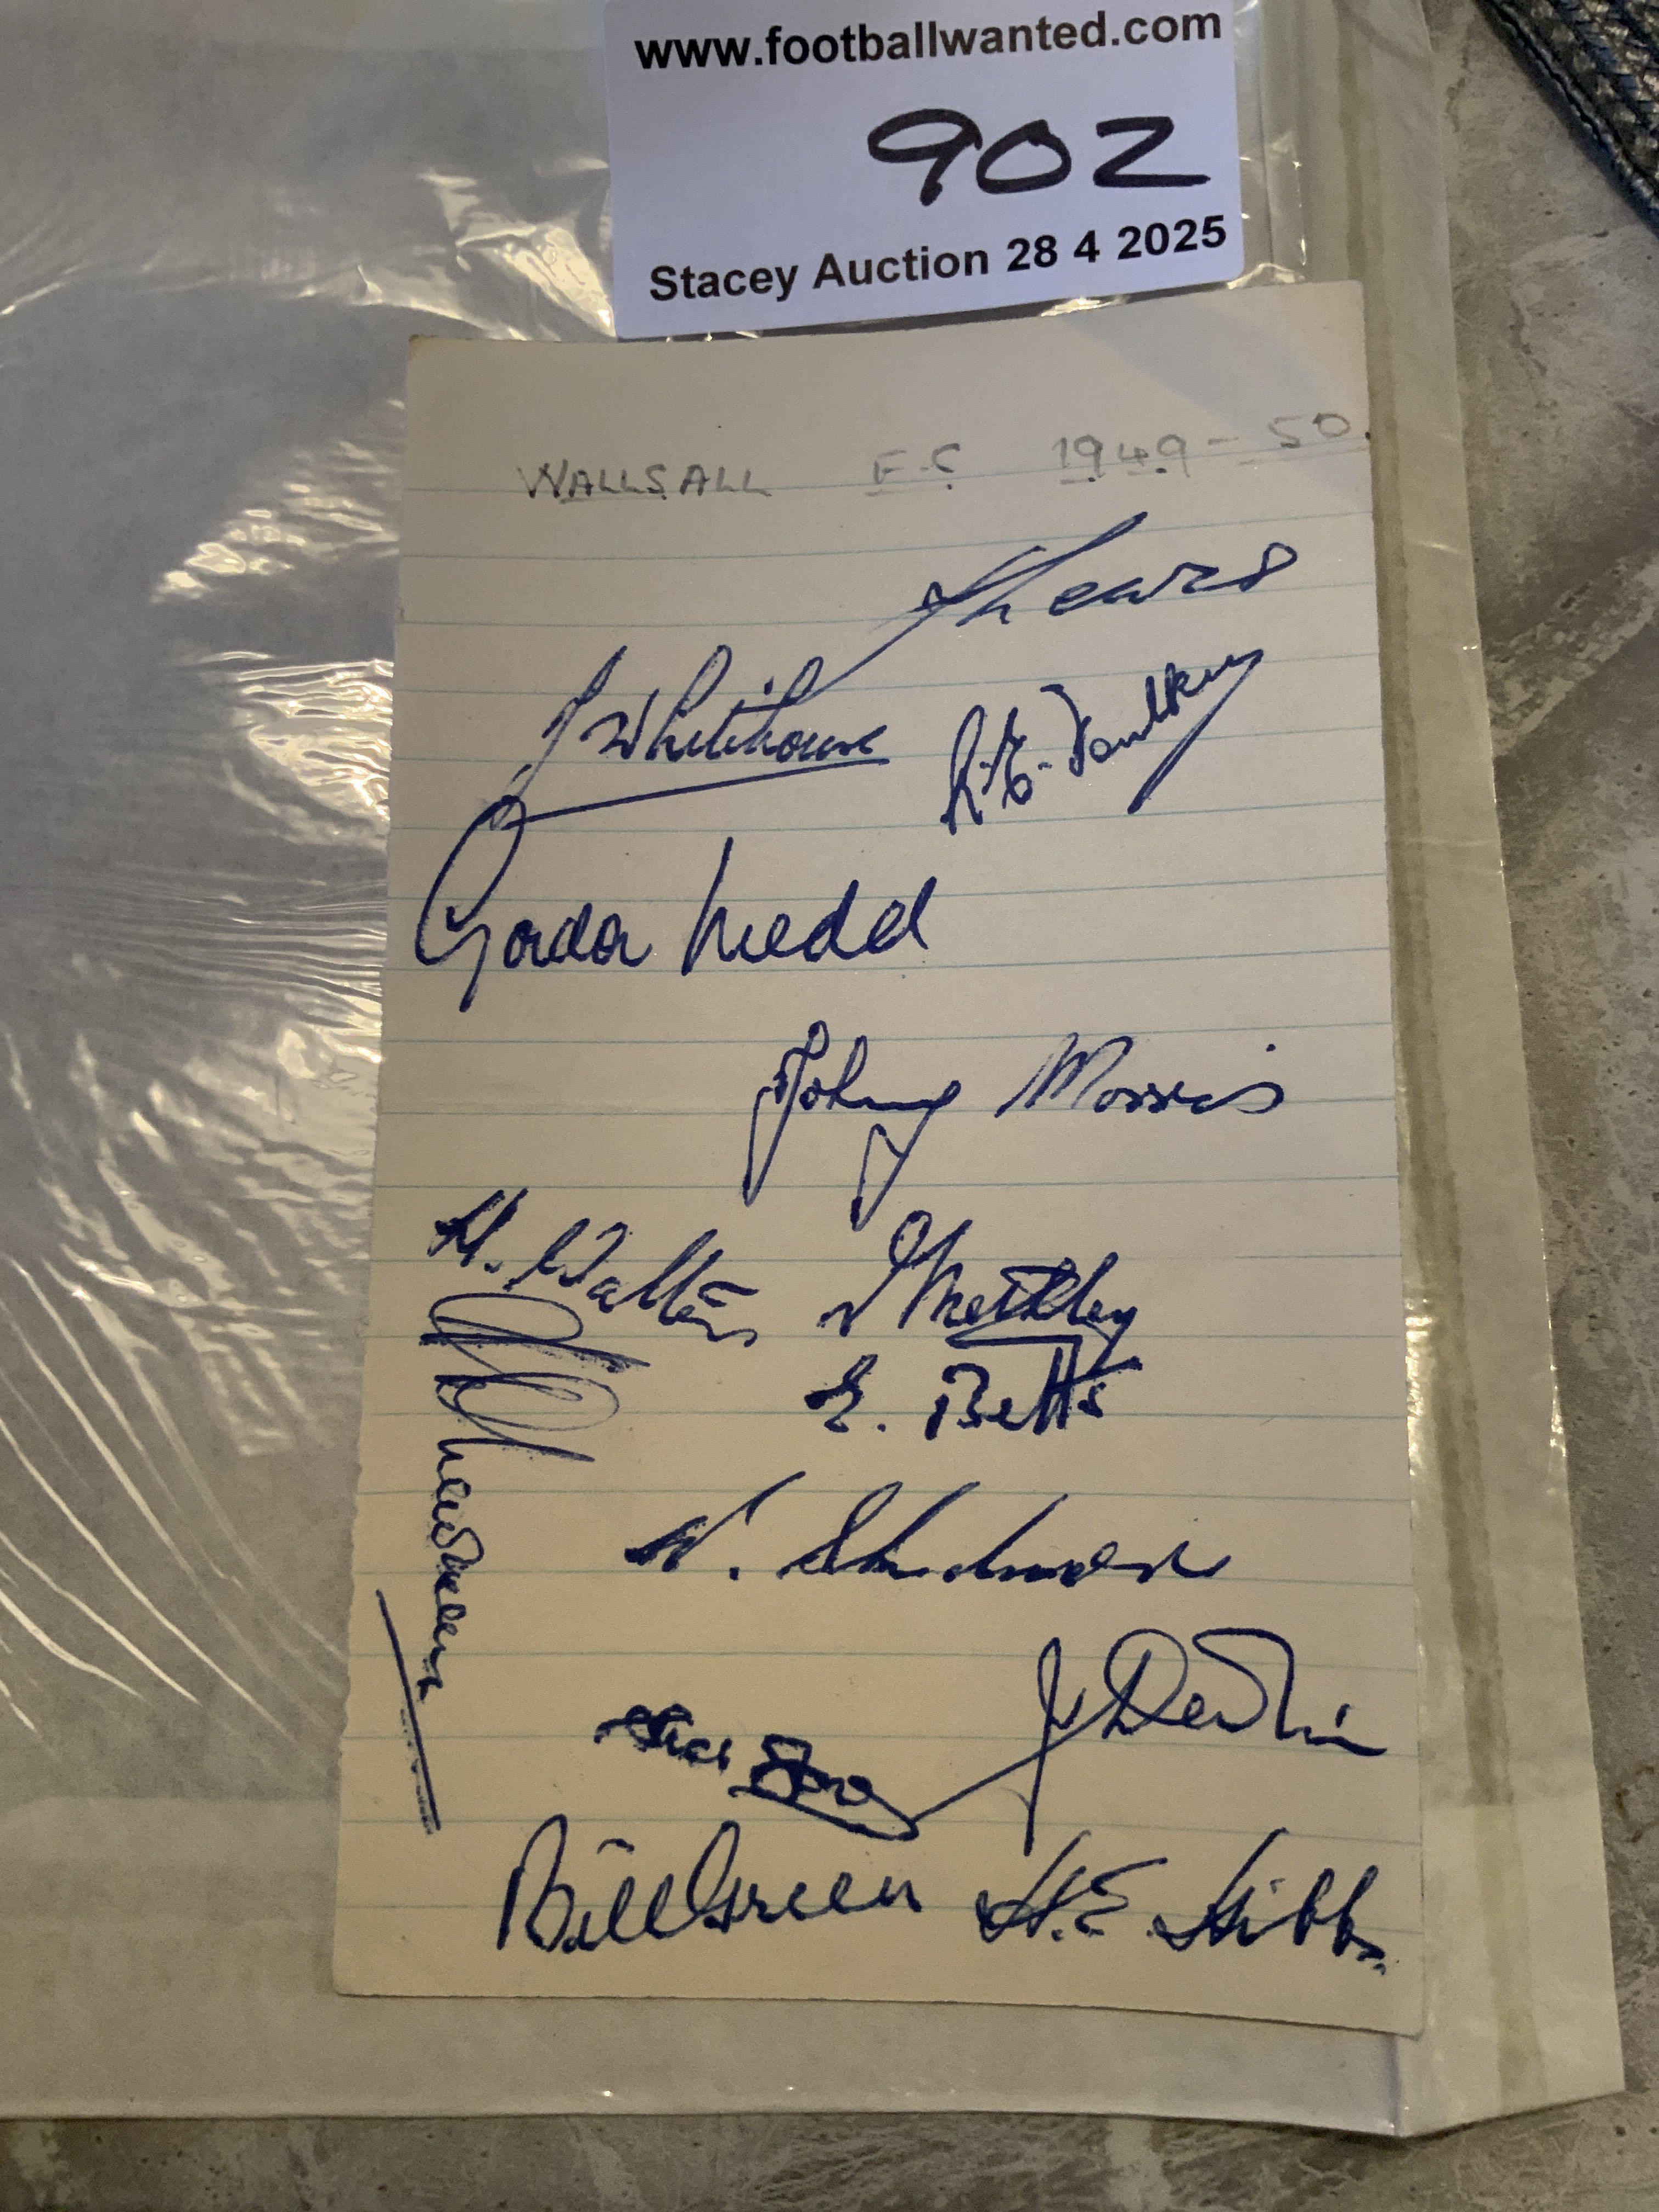 www.footballwanted.com
902
Stacey Auction 28 4 2025
WALLSALL F.C 1949-50.
Shears
J Whitehouse
R.E. Faulkner
Gordon Medd
Johnny Morris
H. Walters
Methley
E. Betts
N. Skidmore
J Devlin
Bill Green
H.E. Hibbs.